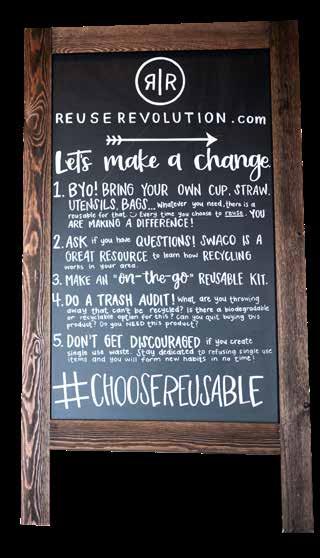 R|R
REUSEREVOLUTION.com
Let's make a change.
1. BYO! BRING YOUR OWN CUP, STRAW,
UTENSILS, BAGS... Whatever you need, there is a
reusable for that :) Every time you choose to reuse, YOU
ARE MAKING A DIFFERENCE!
2. ASK if you have QUESTIONS! SWACO IS A
GREAT RESOURCE to learn how RECYCLING
works in your area.
3. MAKE AN "on-the-go" REUSABLE KIT.
4. DO A TRASH AUDIT! What are you throwing
away that can't be recycled? Is there a biodegradable
or recyclable option for this? Can you quit buying this
product? Do you NEED this product?
5. DON'T GET DISCOURAGED if you create
single use waste. Stay dedicated to refusing single use
items and you will form new habits in no time!
#CHOOSEREUSABLE